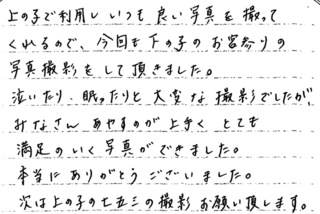 上の子で利用しいつも良い写真を撮って
くれるので、今回も下の子のお宮参りの
写真撮影をして頂きました。
泣いたり、眠ったりと大変な撮影でしたが、
みなさんあやすのが上手くとても
満足のいく写真ができました。
本当にありがとうございました。
次は上の子の七五三の撮影お願い頂します。